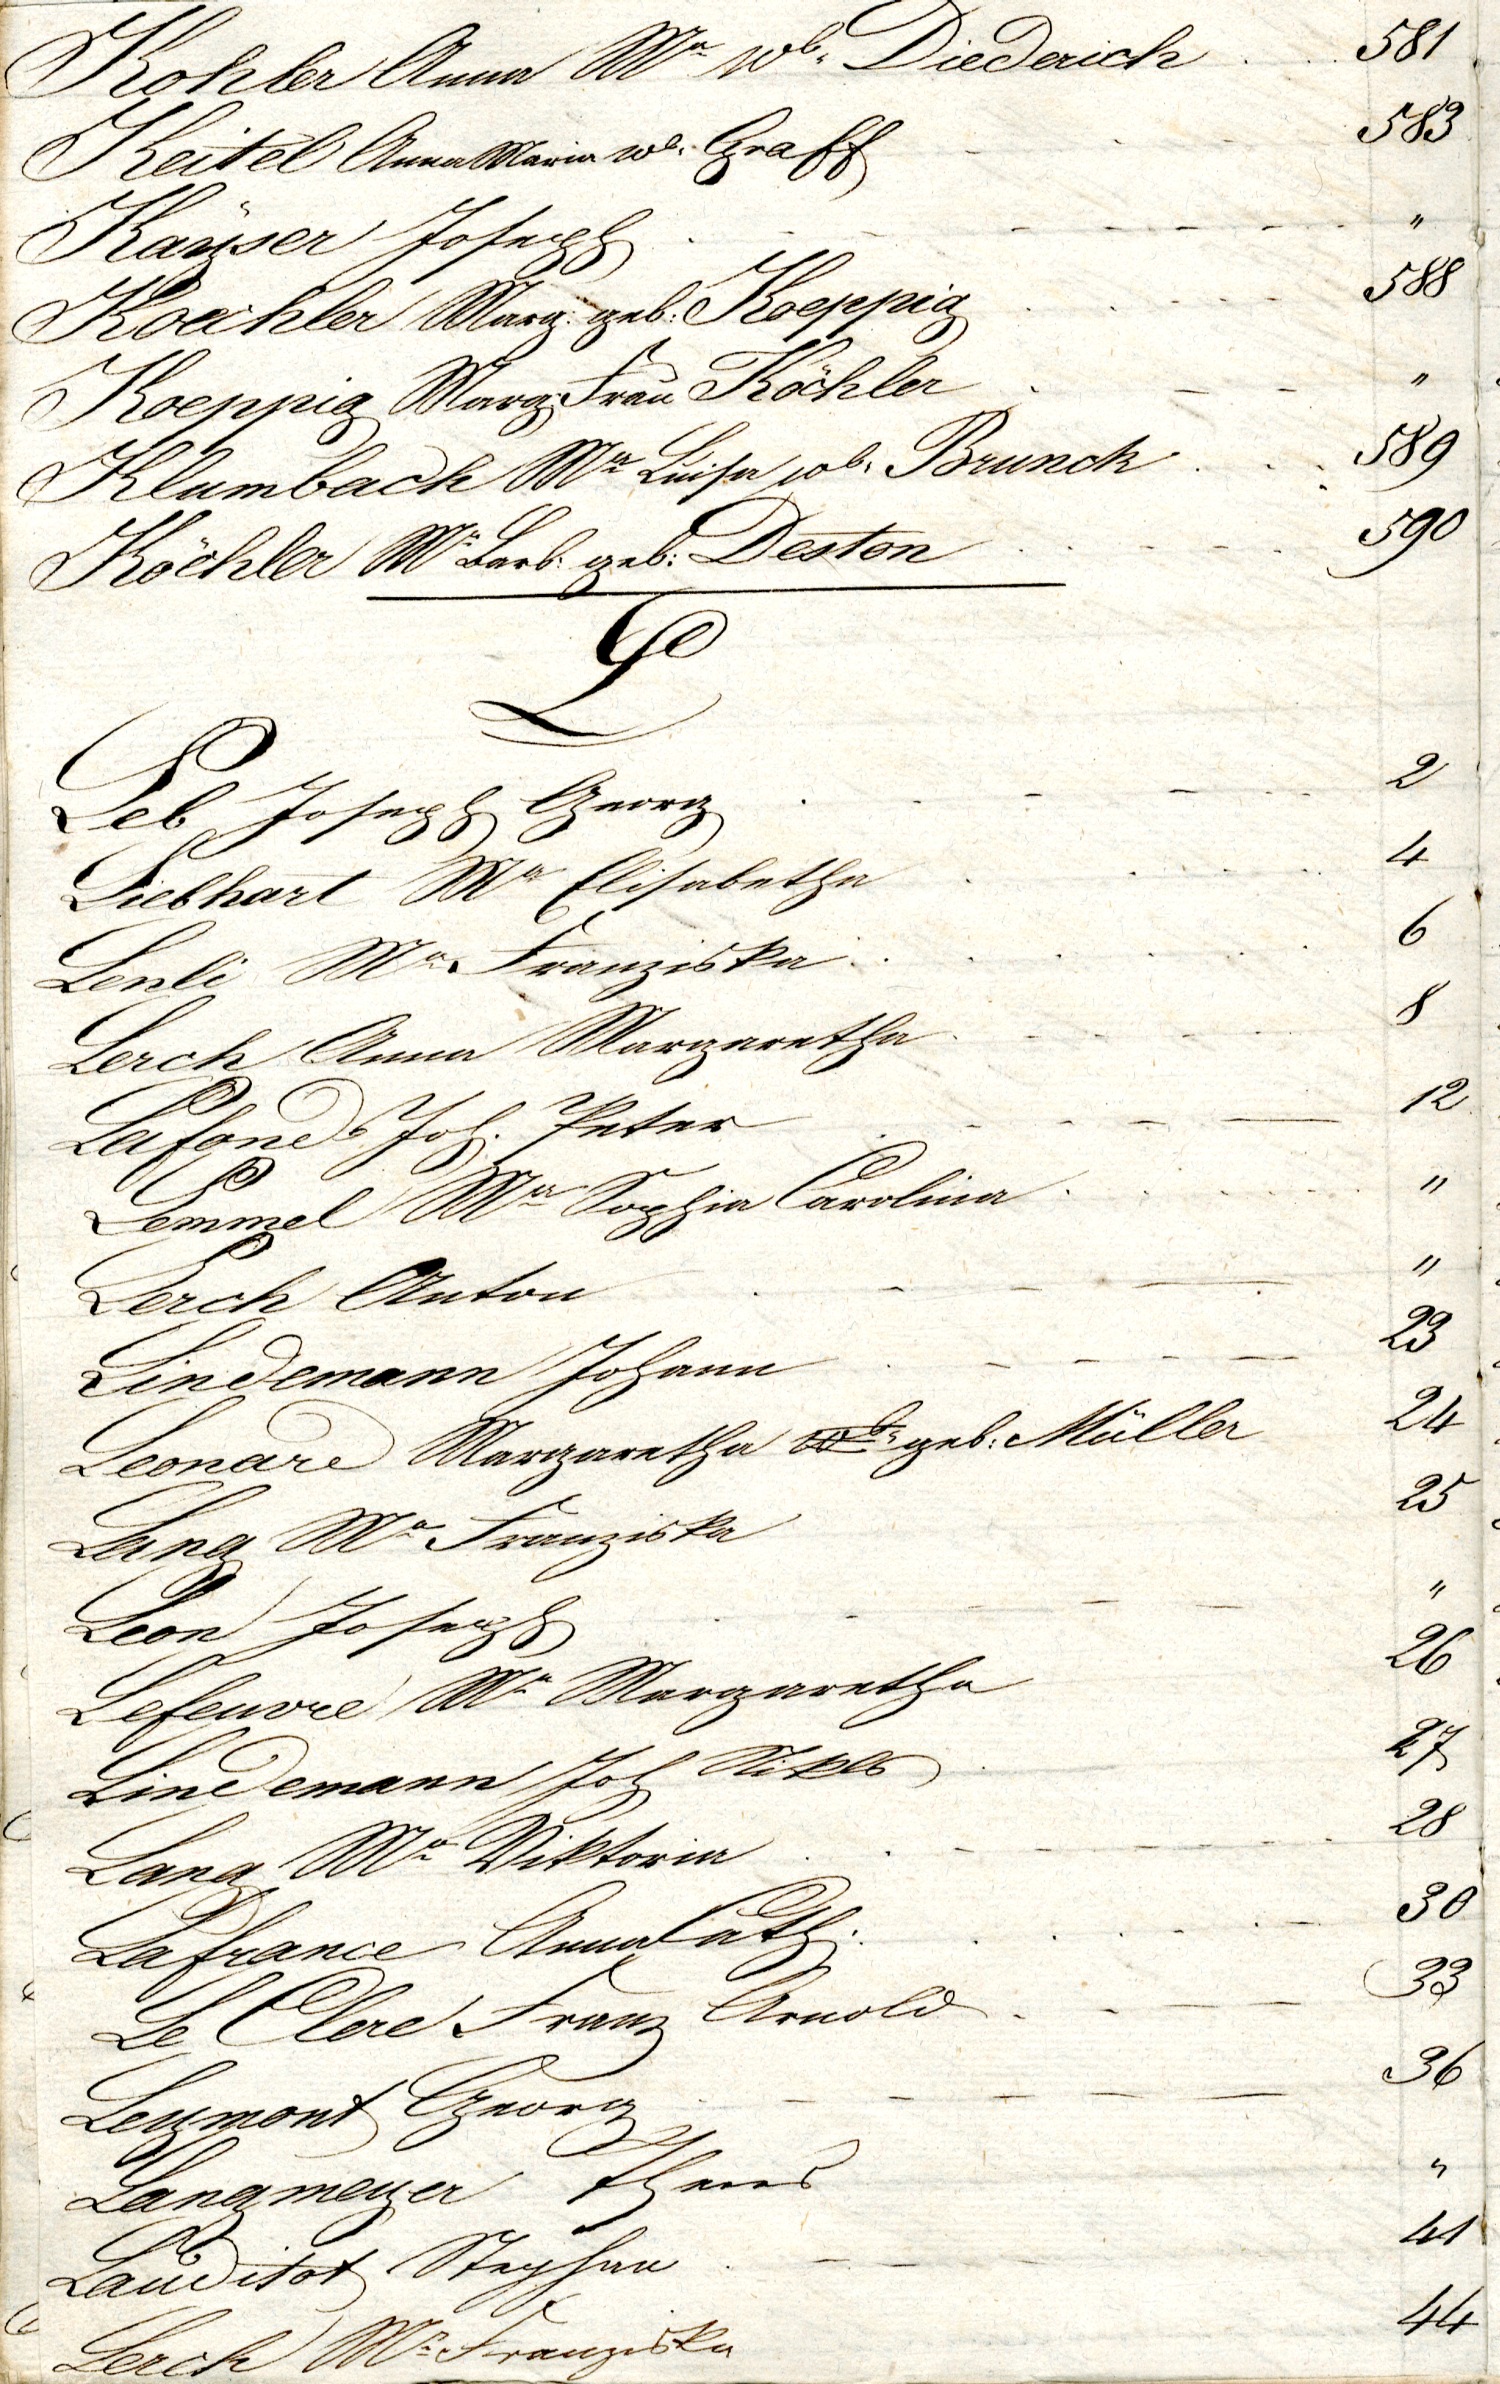 Kohler Anna Ma wb. Diederich 581
Keitel Anna Maria wb. Graff 583
Kaÿser Joseph "
Koechler Marg. geb: Koeppig 588
Koeppig Marg. Frau Köhler "
Klumbach Ma Luisa wb. Brunck 589
Köchler Ma Barb. geb: Deston 590
L
Leb Joseph Georg 2
Liebhart Ma Elisabetha 4
Lenli Ma Franziska 6
Lerch Anna Margaretha 8
Lafond Joh. Peter 12
Lemmel Ma Sophia Carolina "
Lerch Anton "
Lindemann Johann 23
Leonard Margaretha geb: Müller 24
Lang Ma Franziska 25
Leon Joseph "
Lefeuvre Ma Margaretha 26
Lindemann Joh Nikls 27
Lang Ma Viktoria 28
Lafrance Anna Cath. 30
Le Clere Franz Arnold 33
Leymont Georg 36
Langmeyer Theres "
Lauditot Stephan 41
Lerch Ma Franziska 44